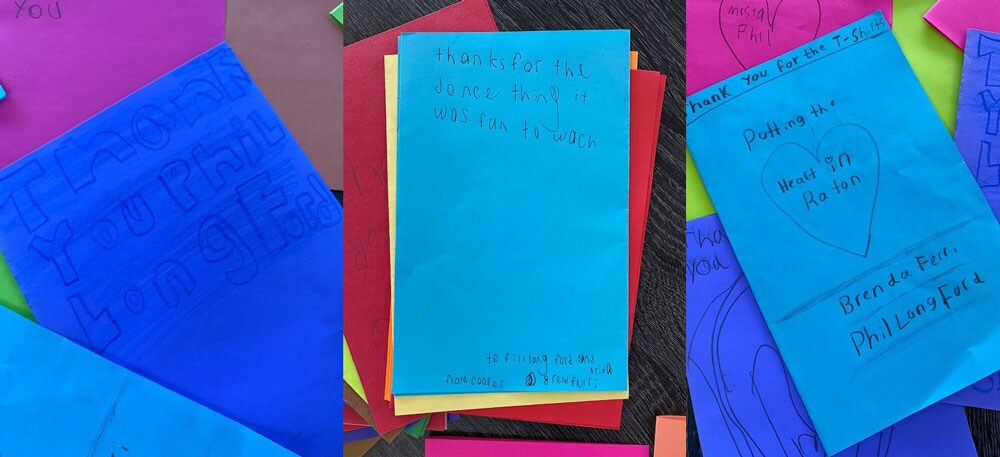 YOU
Thank
You Phil
Long Ford
thanks for the
dance thing it
was fun to wach
to fill long ford and
from cooper
mista
Phil
Thank You for the T-Shirts
Putting the
Heart in
Raton
Brenda Ferri
Phil Long Ford
Tha
you